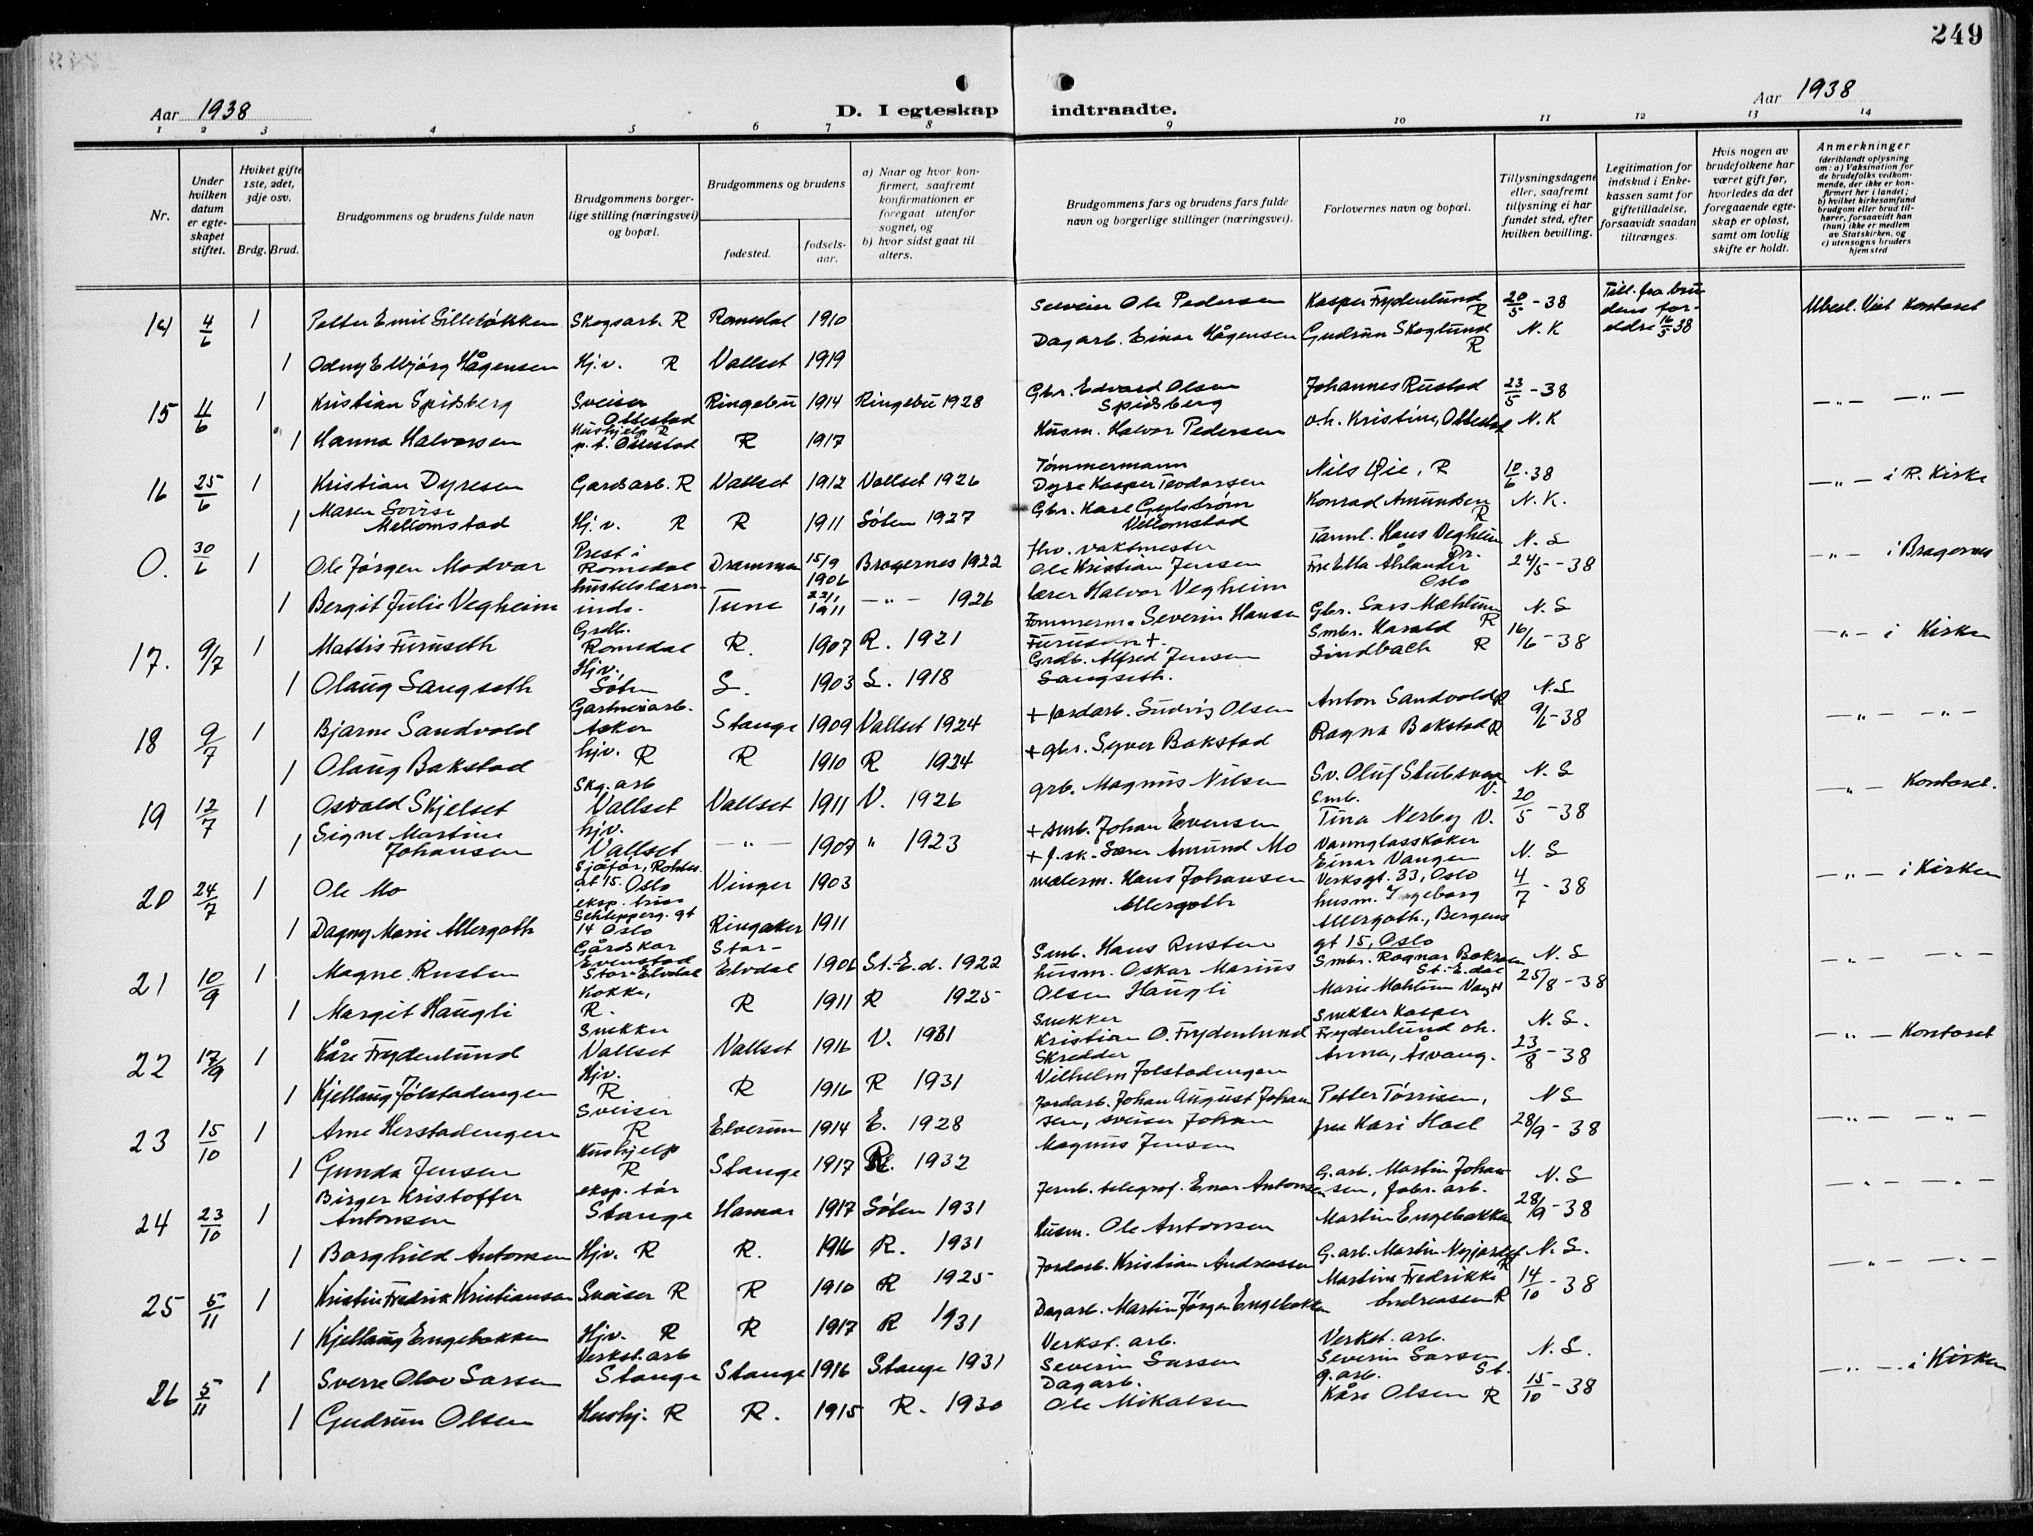 249
Aar 1938
D. I egteskap indtraadte.
Aar 1938
1 2 3 4 5 6 7 8 9 10 11 12 13 14
Nr.
Under hvilken datum er egteskapet stiftet.
Hviket gifte 1ste, 2det, 3dje osv.
Brdg. Brud.
Brudgommens og brudens fulde navn
Brudgommens borgerlige stilling (næringsvei) og bopæl.
Brudgommens og brudens
fødested.
fødselsaar.
a) Naar og hvor konfirmert, saafremt konfirmationen er foregaat utenfor sognet, og
b) hvor sidst gaat til alters.
Brudgommens fars og brudens fars fulde navn og borgerlige stillinger (næringsvei).
Forlovernes navn og bopæl.
Tillysningsdagene eller, saafremt tillysning ei har fundet sted, efter hvilken bevilling.
Legitimation for indskud i Enkekassen samt for giftetilladelse, forsaavidt saadan tiltrænges.
Hvis nogen av brudefolkene har været gift før, hvorledes da det foregaaende egteskap er opløst, samt om lovlig skifte er holdt.
Anmerkninger
(deriblandt oplysning om: a) Vaksination for de brudefolks vedkommende, der ikke er konfirmert her i landet; b) hvilket kirkesamfund brudgom eller brud tilhører, forsaavidt han (hun) ikke er medlem av Statskirken, og c) utensogns bruders hjemsted
14 4/6 1 Petter Emil Gillebøkken Skogsarb. R Romedal 1910 Ole Pedersen Kasper Frydenlund R 20/5 - 38 Till. fra brudens foreldre 16/5 38 Kontoret
1 Odny Elbjørg Hågensen Hj.v. R Vallset 1919 Dagarb. Einar Hågensen Gudrun Skoglund R N. K
15 11/6 1 Kristian Spidsberg Sveiser Ottestad Ringebu 1914 Ringebu 1928 Gbr. Edvard Olsen Spidsberg Johannes Rustad 23/5 - 38 -"- -"-
1 Hanna Halvorsen Hushjelp R p.t. Ottestad R 1917 Husm. Halvor Pedersen o.h. Kristine, Ottestad N. K
16 25/6 1 Kristian Dyresen Gardsarb. R Vallset 1912 Vallset 1926 Tømmermann Dyre Kasper Teodorsen Nils Øie, R 10/6 - 38 -"- i R. Kirke
1 Maren Lovise Mellomstad Hj.v. R R 1911 Søten 1927 Gbr. Karl Mellomstad Konrad Amundsen R N. K.
0. 30/6 1 Ole Jørgen Modvar Prest i Romedal Drammen 15/9 1906 Bragernes 1922 fhv. vaktmester Ole Kristian Jensen Tannl. Hans Vegheim Dr. N. L -"- i Bragernes
1 Bergit Julie Vegheim Tune 22/1 1911 -"- 1926 lærer Halvor Vegheim Frk Ella Ahlander Oslo 24/5 - 38
17. 9/7 1 Mattis Furuseth Grdb. Romedal R. 1907 R. 1921 Tømmerm. Severin Hansen Furuseth + Gbr. Lars Mæhlum R N. L -"- i Kirken
1 Olaug Langseth Hjv. Løten L. 1903 L. 1918 Grdb. Alfred Jensen Langseth. Smbr. Harald Lindbach R 16/6 - 38
18 9/7 1 Bjarne Sandvold Gartneriarb. Asker Stange 1909 Vallset 1924 + jordarb. Ludvig Olsen Anton Sandvold R N. L -"- -"-
1 Olaug Bakstad hjv. R R 1910 R 1924 + gbr. Syver Bakstad Ragna Bakstad R 9/6 - 38
19 12/7 1 Osvald Skjelset Skg. arb Vallset Vallset 1911 V. 1926 grb. Magnus Nilsen Sv. Oluf V. N. L -"- Kontoret.
1 Signe Martine Johansen hjv. Vallset -"- 1907 " 1923 + smb. Johan Evensen Smb. Tina Nerby V. 20/5 - 38
20 24/7 1 Ole Mo Sjåfør, gt 15. Oslo Vinger 1903 Amund Mo Einar Vangen Verksgt. 33, Oslo N. L -"- i Kirken
1 Dagny Marie Allergoth eksp. Schleppegr. gt 14 Oslo Ringsaker 1911 malerm. Hans Johansen Allergoth husm. Ingeborg Allergoth., Bergens gt 15, Oslo 4/7 - 38
21 10/9 1 Magne Rusten Gårdskar Evenstad Stor-Elvdal Stor-Elvdal 1906 St.-E.d. 1922 Smb. Hans Rusten Smbr. Ragnar St.-E.dal N. L -"- -"-
1 Margit Haugli Kokke, R. R 1911 R 1925 husm. Oskar Marius Olsen Haugli Marie Mæhlum 25/8 - 38
22 17/9 1 Kåre Frydenlund Snekker Vallset Vallset 1916 V. 1931 Snekker Kristian O. Frydenlund Snekker Kasper Frydenlund oh. N. L. -"- Kontoret
1 Kjellaug Jølstadengen Hjv. R R 1916 R 1931 Skredder Vilhelm Jølstadengen Anna, Åsvang. 23/8 - 38
23 15/10 1 Arne Herstadengen Sveiser R Elverum 1914 E. 1928 Jordarb. Johan August Johansen, Petter Tørrisen, N L -"- "-
1 Gunda Jensen Hushjelp R Stange 1917 R. 1932 sveiser Johan Magnus Jensen frk Kari Hoel 28/9 - 38
24 23/10 1 Birger Kristoffer Antonsen eksp. Stange Hamar 1917 Løten 1931 Jernb. telegraf. Einar Antonsen G. arb. Martin Johansen, fabr. arb. N. L -"- -"-
1 Borghild Antonsen Hjv. R R. 1916 R. 1931 Husm. Ole Antonsen Martin Engebakken 28/9 - 38
25 5/11 1 Kristian Fredrik Kristiansen Sveiser R R 1910 R 1925 Jordarb. Kristian Andreassen G. arb. Martin Nyjordet R N. L. -"- -"-
1 Kjellaug Engebakken Hjv. R R 1917 R 1931 Dagarb. Martin Jørgen Engebakken Martine Fredrikke Andreassen R 14/10 - 38
26 5/11 1 Sverre Olav Larsen Verkst. arb Stange Stange 1916 Stange 1931 Verkst. arb. Severin Larsen Verkst. arb. Severin Larsen St. N. L. -"- i Kirken
1 Gudrun Olsen Hushj. R R. 1915 R. 1930 Dagarb. Ole Mikalsen g. arb. Kåre Olsen R 15/10 - 38